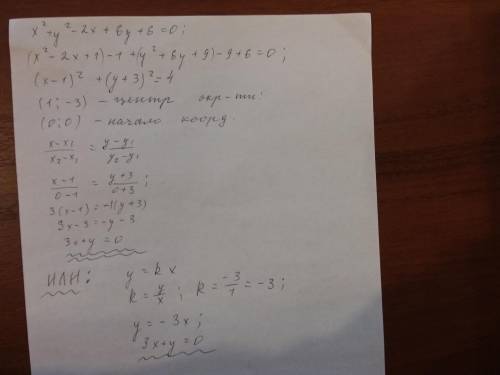 x² + y² - 2x + 6y + 6 = 0;
(x² - 2x + 1) - 1 + (y² + 6y + 9) - 9 + 6 = 0;
(x - 1)² + (y + 3)² = 4
(1; -3) - центр окр-ти.
(0; 0) - начало коорд.
(x - x₁)/(x₂ - x₁) = (y - y₁)/(y₂ - y₁)
(x - 1)/(0 - 1) = (y + 3)/(0 + 3);
3(x - 1) = -1(y + 3)
3x - 3 = -y - 3
3x + y = 0
ИЛИ: y = kx
k = y/x; k = -3/1 = -3;
y = -3x;
3x + y = 0